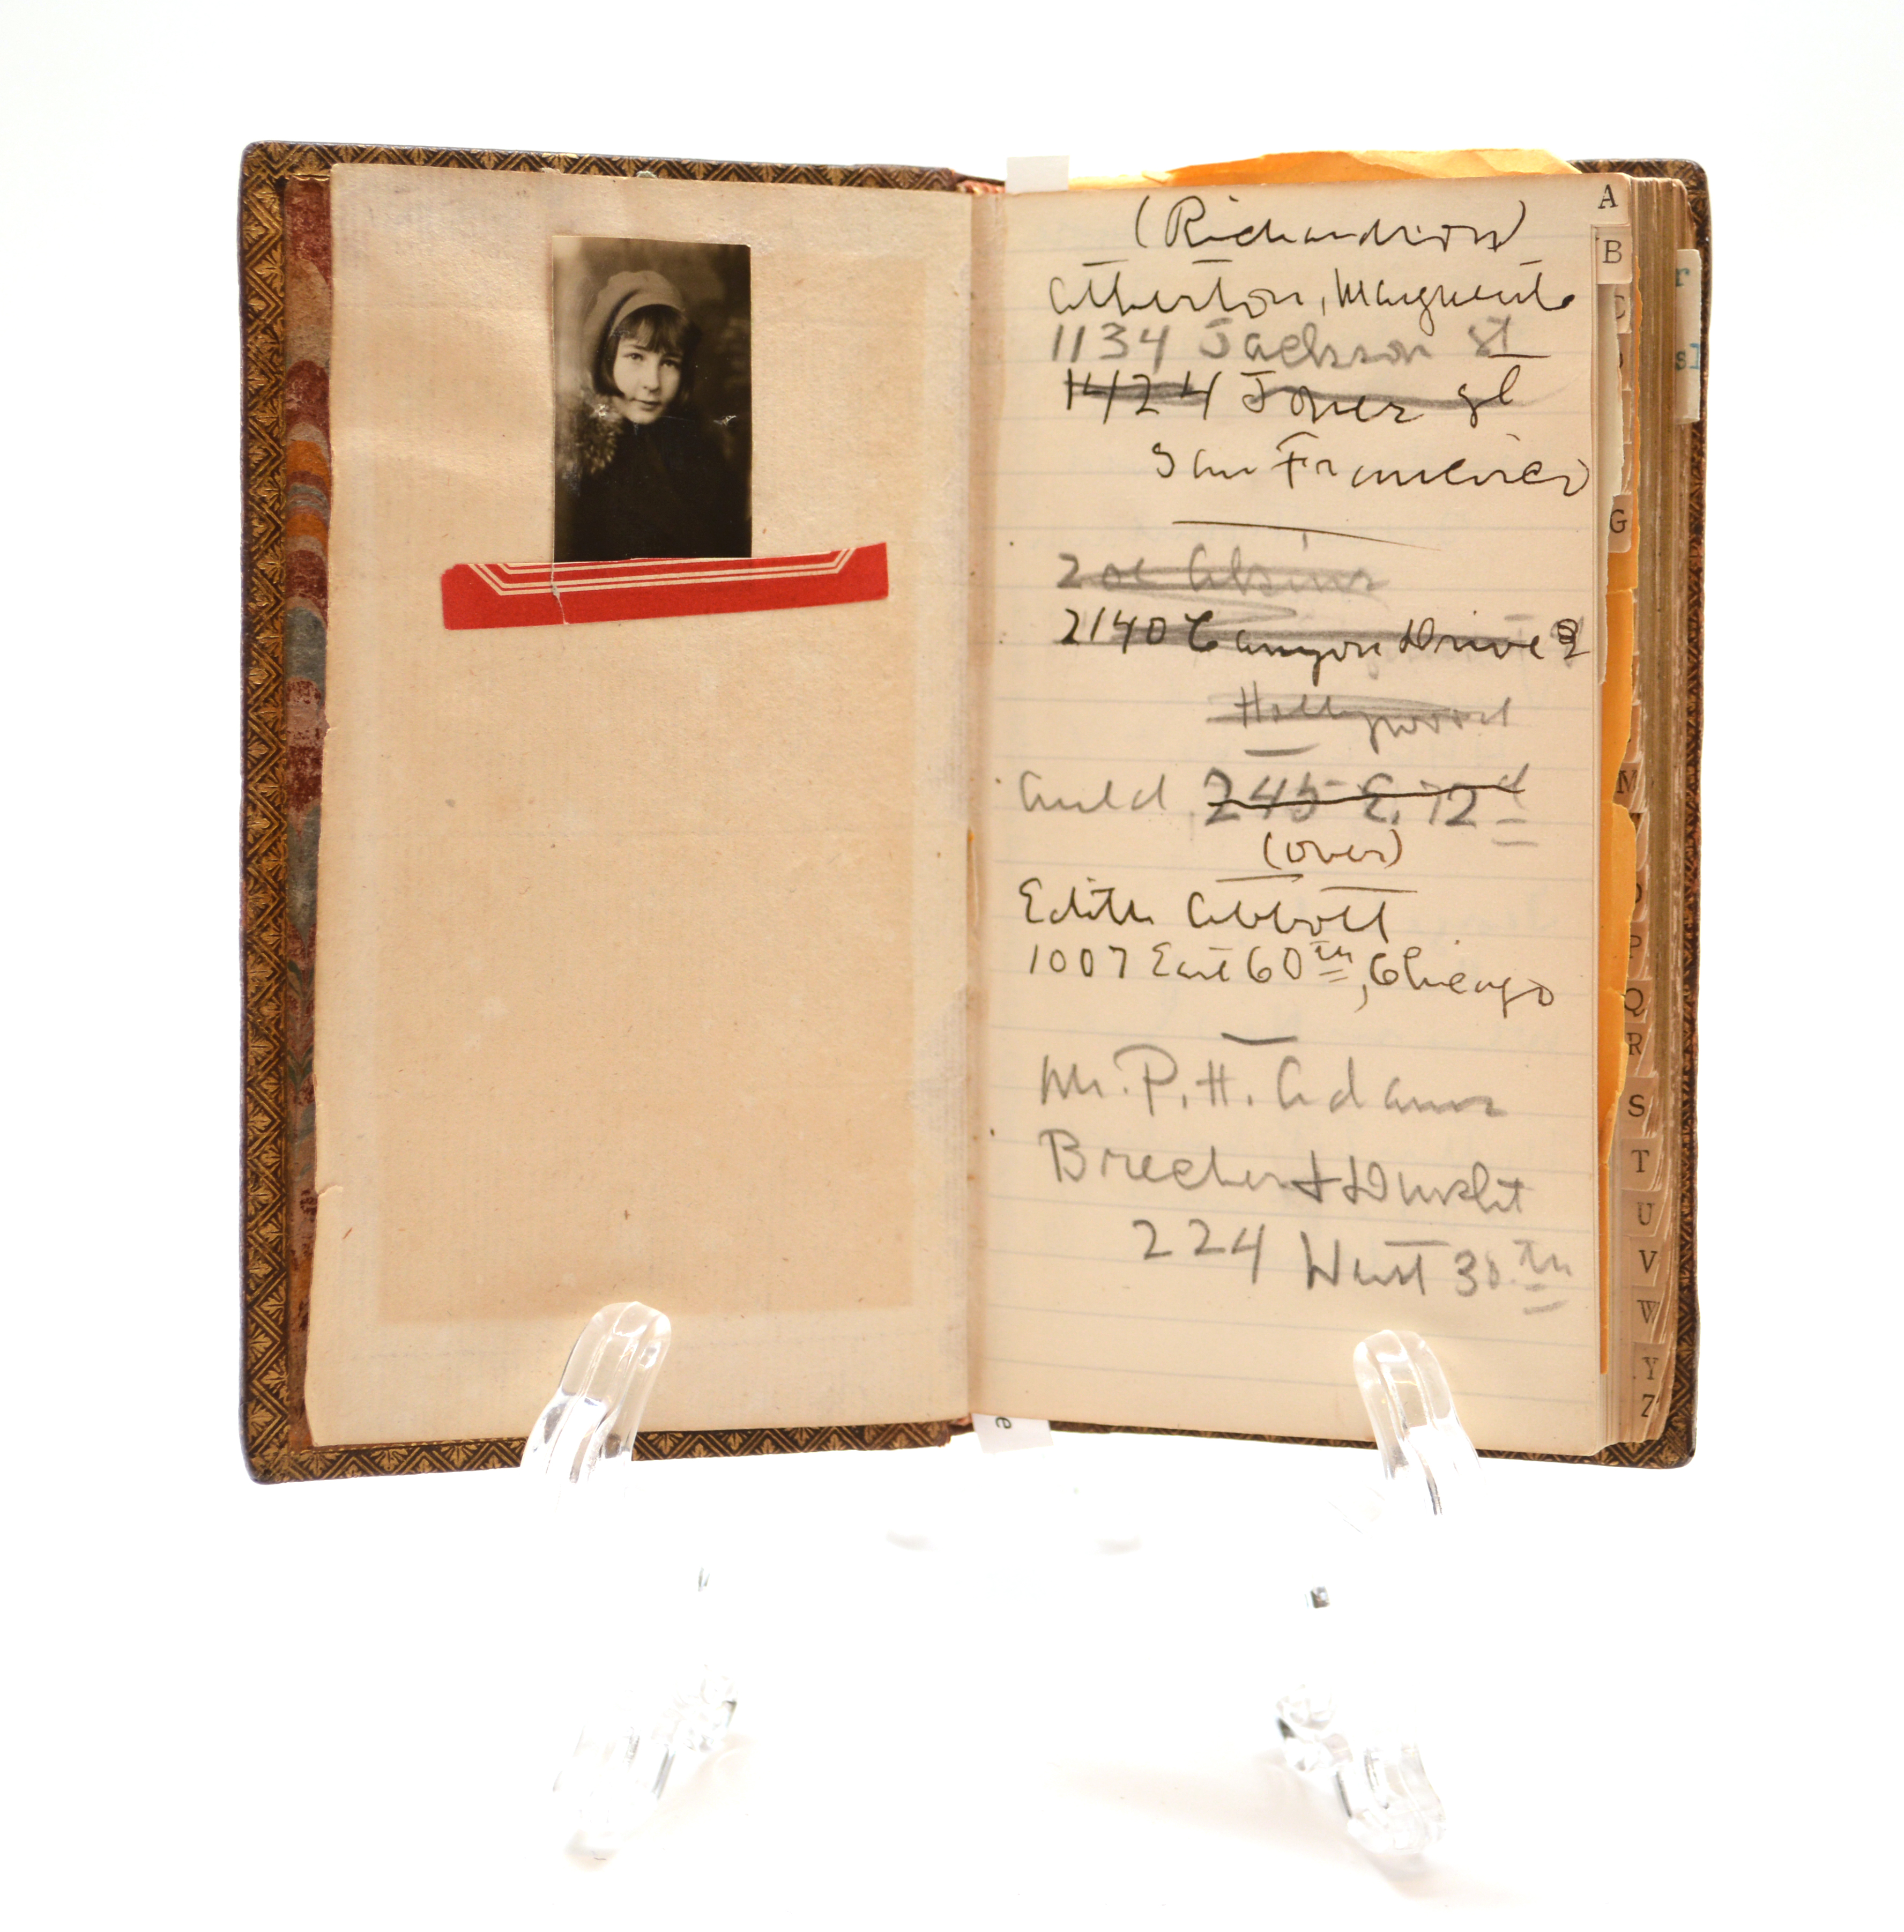 (Richardson)
Atherton, Marguerite
1134 Jackson St
1424 Jones St
San Francisco
Zoe Akins
2140 Canyon Drive
Hollywood
Auld 245 E. 72d
(over)
Edith Abbott
1007 East 60th, Chicago
Mr. P. H. Adams
224 West 30th
A
B
C
G
M
P
Q
R
S
T
U
V
W
Y
Z
e